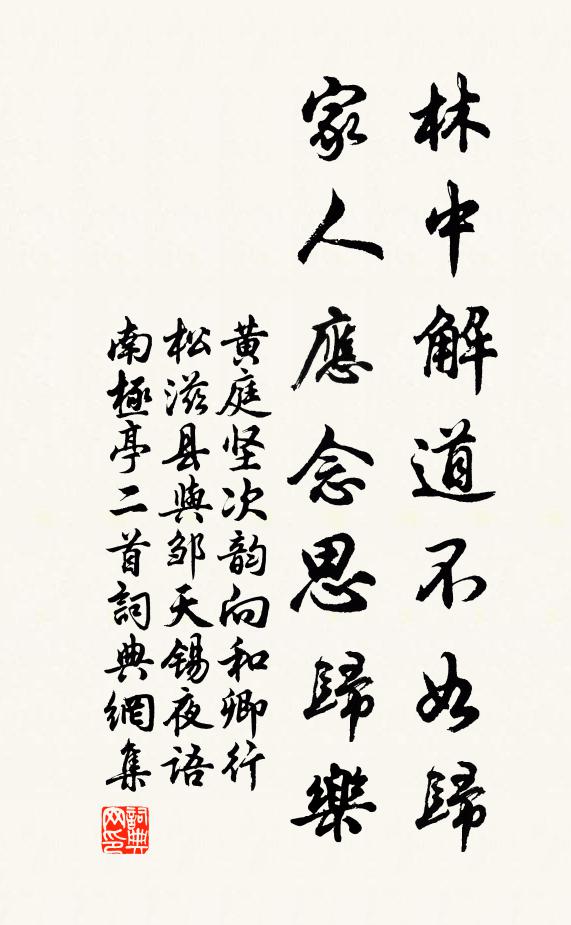 林中解道不如歸
家人應念思歸樂
黄庭坚次韵向和卿行
松滋县與邹天锡夜语
南極亭二首詞典網集
詞典
网印